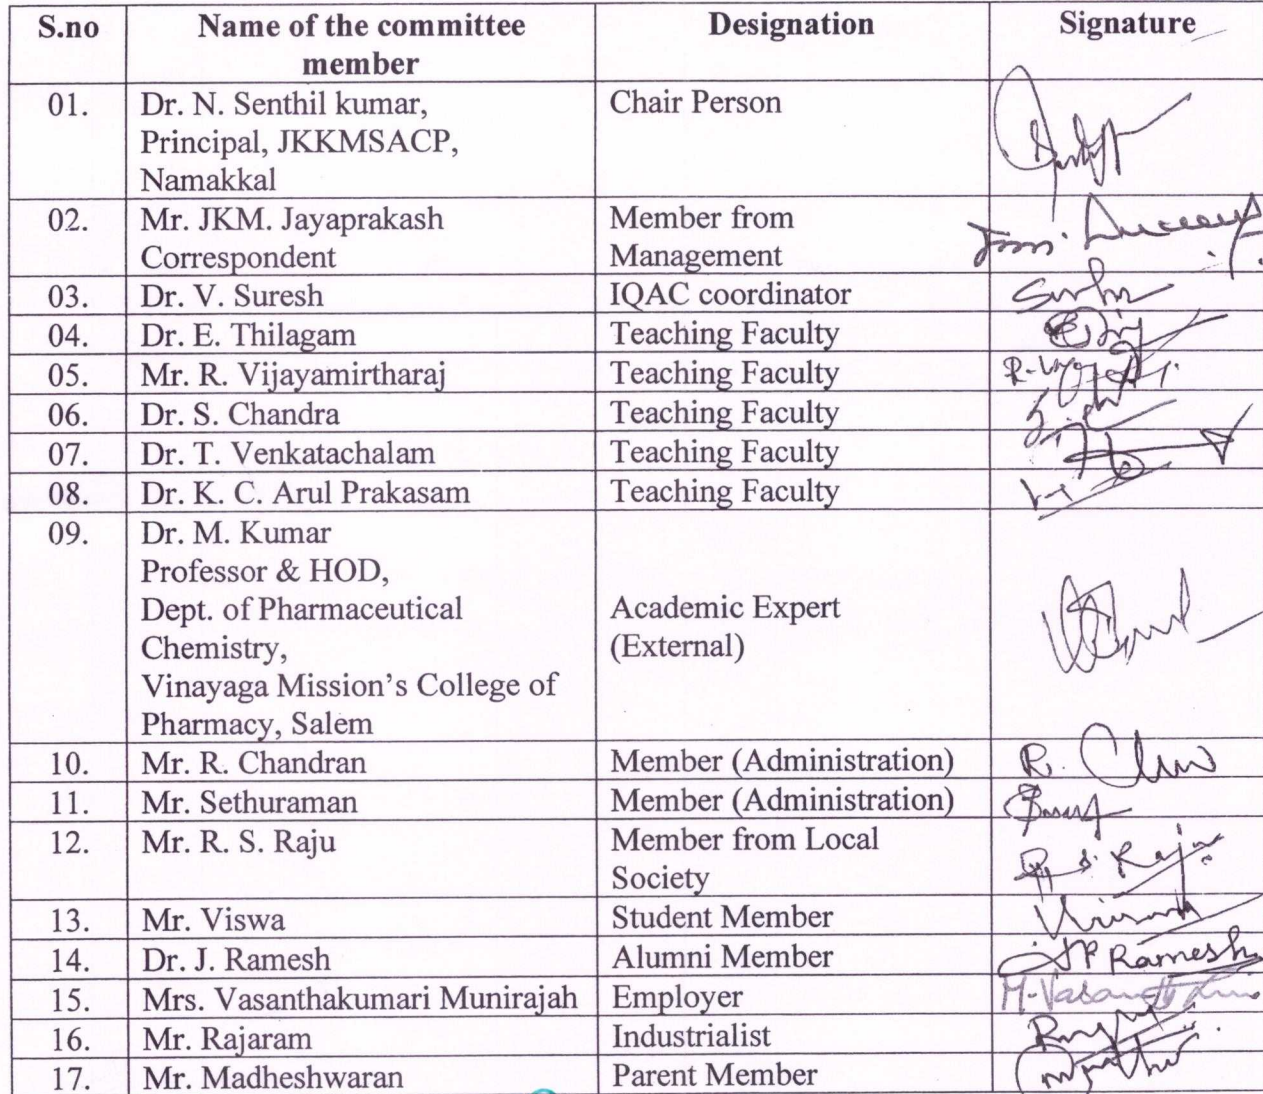 S.no Name of the committee Designation Signature
member
01. Dr. N. Senthil kumar, Chair Person
Principal, JKKMSACP,
Namakkal
02. Mr. JKM. Jayaprakash Member from
Correspondent Management
03. Dr. V. Suresh IQAC coordinator
04. Dr. E. Thilagam Teaching Faculty
05. Mr. R. Vijayamirtharaj Teaching Faculty
06. Dr. S. Chandra Teaching Faculty
07. Dr. T. Venkatachalam Teaching Faculty
08. Dr. K. C. Arul Prakasam Teaching Faculty
09. Dr. M. Kumar
Professor & HOD,
Dept. of Pharmaceutical Academic Expert
Chemistry, (External)
Vinayaga Mission's College of
Pharmacy, Salem
10. Mr. R. Chandran Member (Administration) R.
11. Mr. Sethuraman Member (Administration)
12. Mr. R. S. Raju Member from Local
Society
13. Mr. Viswa Student Member
14. Dr. J. Ramesh Alumni Member Ramesh
15. Mrs. Vasanthakumari Munirajah Employer
16. Mr. Rajaram Industrialist
17. Mr. Madheshwaran Parent Member